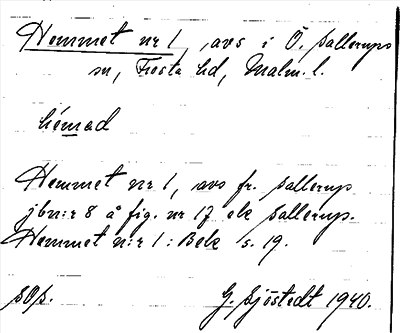 Hemmet nr 1, avs i Ö. Sallerups
sn, Frosta hd, Malm. l.
hémad
Hemmet nr 1, avs fr. Sallerup
jbn:r 8 å fig. nr 17 ek Sallerup.
Hemmet n:r 1: Bek s. 19.
G. Sjöstedt 1940.